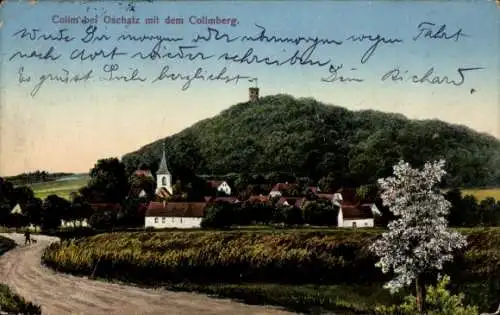 Colm bei Oschatz mit dem Collmberg.
werde Dir morgen oder übermorgen wegen Fahrt
nach dort wieder schreiben
Es grüsst Dich herzlichst Dein Richard